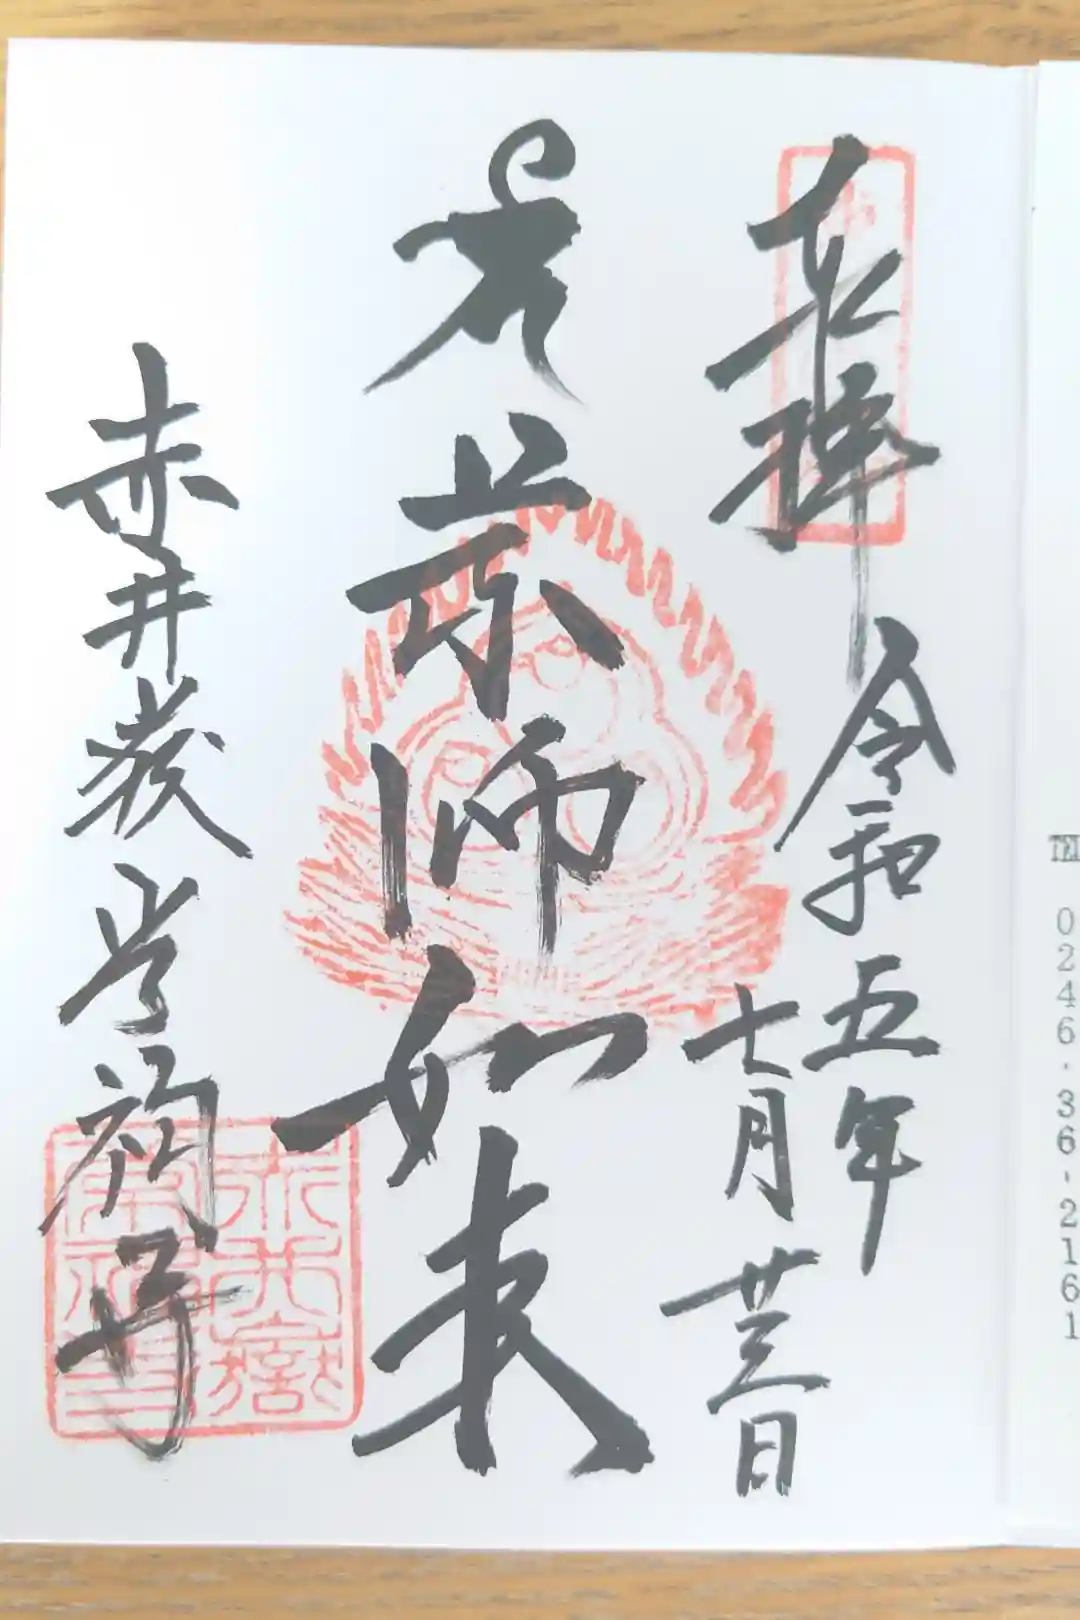 奉拝
令和五年
七月廿三日
薬師如来
赤井嶽常福寺
TEL 0246・36・2161